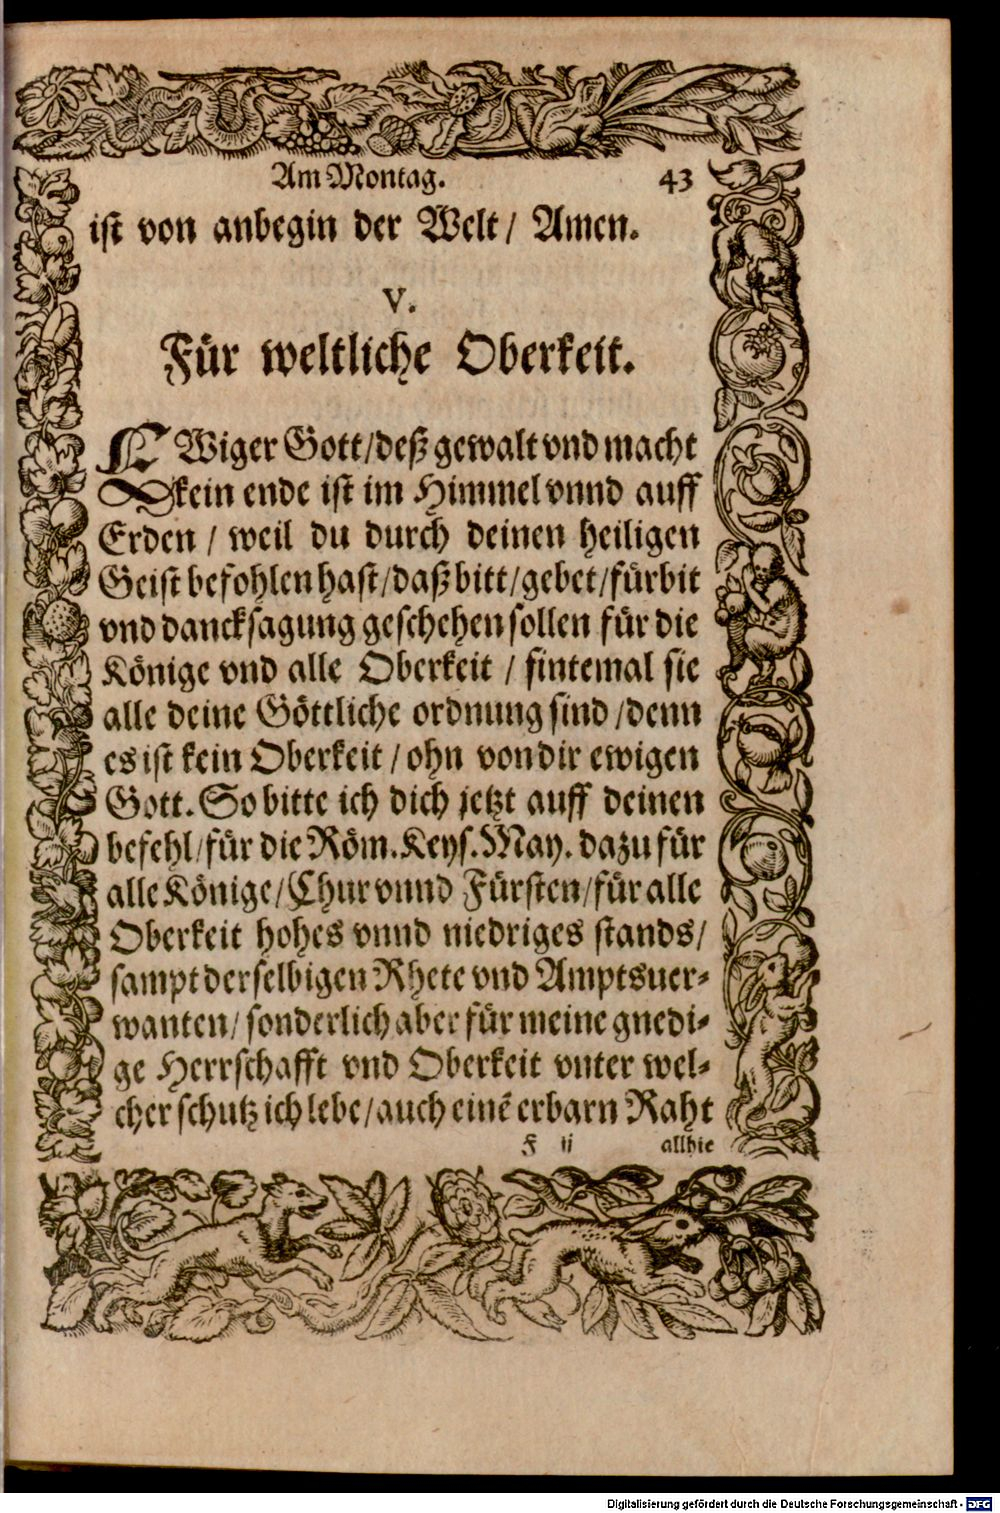 Am Montag. 43
ist von anbegin der Welt / Amen.
V.
Für weltliche Oberkeit.
EWiger Gott / deß gewalt vnd macht
kein ende ist im Himmel vnnd auff
Erden / weil du durch deinen heiligen
Geist befohlen hast / daß bitt / gebet / fürbit
vnd dancksagung geschehen sollen für die
Könige vnd alle Oberkeit / sintemal sie
alle deine Göttliche ordnung sind / denn
es ist kein Oberkeit / ohn von dir ewigen
Gott. So bitte ich dich jetzt auff deinen
befehl / für die Röm. Keys. May. dazu für
alle Könige / Chur vnnd Fürsten / für alle
Oberkeit hohes vnnd niedriges stands /
sampt derselbigen Rhete vnd Amptsuer⸗
wanten / sonderlich aber für meine gnedi⸗
ge Herrschafft vnd Oberkeit vnter wel⸗
cher schutz ich lebe / auch einē erbarn Raht
F ij allhie
Digitalisierung gefördert durch die Deutsche Forschungsgemeinschaft - DFG